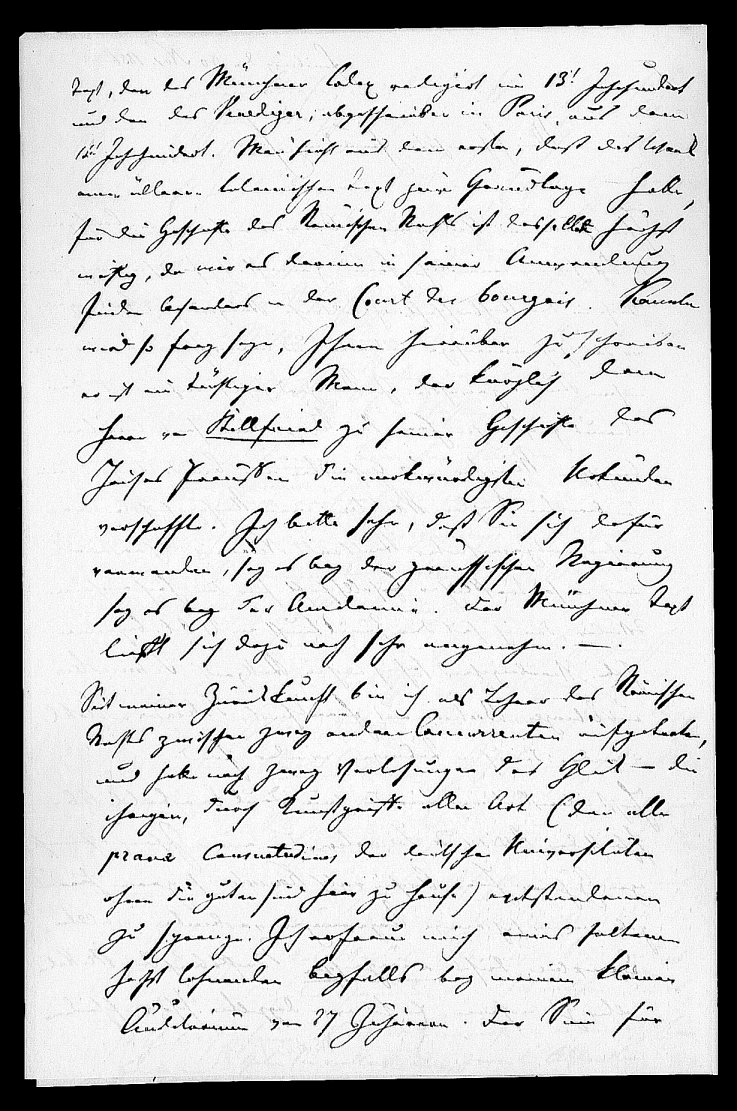 Text, den des Münchner Codex redigirt im 13t Jahrhundert
und den des Venediger, abgeschrieben in Paris, aus dem
14t Jahrhundert. Man sieht aus dem ersten, daß das Werk
einen älteren lateinischen Text zur Grundlage habe,
für die Geschichte des Römischen Rechts ist dasselbe höchst
wichtig, da wir es darinn in seiner Anwendung
finden besonders in der Court des bourgeois.
wird so frey seyn, Ihnen hierüber zu schreiben
er ist ein tüchtiger Mann, der kürzlich dem
Herrn von Stillfried zu seiner Geschichte des
Hauses Preussen die merkwürdigsten Urkunden
verschaffte. Ich bitte sehr, daß Sie sich dafür
verwenden, sey es bey der preussischen Regierung
sey es bey der Academie. Der Münchner Text
ließt sich dazu noch sehr angenehm. —.
Seit meiner Zurückkunft bin ich als Lehrer des Römischen
Rechts zwischen zwey andern Concurrenten aufgetreten,
und habe nach zwey Vorlesungen das Glück — die
ihrigen, durch Kunstgriffe aller Art (denn alle
pravae consuetudines der deutschen Universitäten
ohne die guten sind hier zu Hause) entstandenen
zu sprengen. Ich erfreue mich eines seltenen
höchst lohnenden Beyfalls bey meinem kleinen
Auditorium von 27 Zuhörern. Der Sinn für